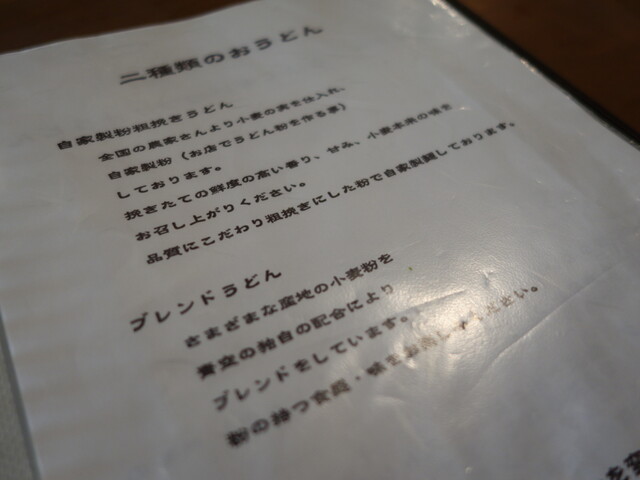 二種類のおうどん
自家製粉粗挽きうどん
全国の農家さんより小麦の実を仕入れ、
自家製粉（お店でうどん粉を作る事）
しております。
挽きたての鮮度の高い香り、甘み、小麦本来の味を
お召し上がりください。
品質にこだわり粗挽きにした粉で自家製麺しております。
ブレンドうどん
さまざまな産地の小麦粉を
の独自の配合により
ブレンドをしています。
粉の持つ食感・味をお楽しみください。